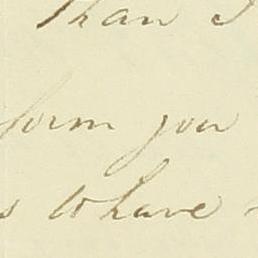 than I
form you
s to have